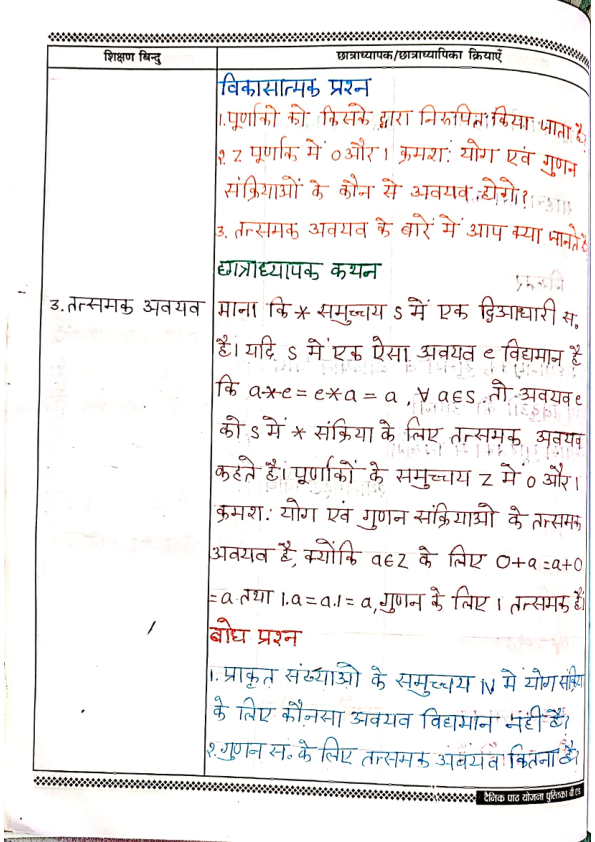 शिक्षण बिन्दु
छात्राध्यापक/छात्राध्यापिका क्रियाएँ
विकासात्मक प्रश्न
1. पूर्णांको को किसके द्वारा निरूपित किया जाता है
2. Z पूर्णांक में 0 और 1 क्रमश: योग एवं गुणन
संक्रियाओं के कौन से अवयव होगे?
3. तत्समक अवयव के बारें में आप क्या जानते है
छात्राध्यापक कथन
3. तत्समक अवयव
माना कि * समुच्चय S में एक द्विआधारी स.
है। यदि S में एक ऐसा अवयव e विद्यमान है
कि a*e = e*a = a, ∀ a∈S, तो अवयव e
को S में * संक्रिया के लिए तत्समक अवयव
कहते है। पूर्णाकों के समुच्चय Z में 0 और 1
क्रमश: योग एवं गुणन संक्रियाओ के तत्समक
अवयव है, क्योंकि a∈Z के लिए 0+a=a+0
=a तथा 1.a=a.1=a, गुणन के लिए 1 तत्समक है।
बोध प्रश्न
1. प्राकृत संख्याओ के समुच्चय N में योग संक्रिया
के लिए कौनसा अवयव विद्यमान नही है।
2. गुणन सं. के लिए तत्समक अवयव कितना है।
दैनिक पाठ योजना पुस्तिका बी.एड